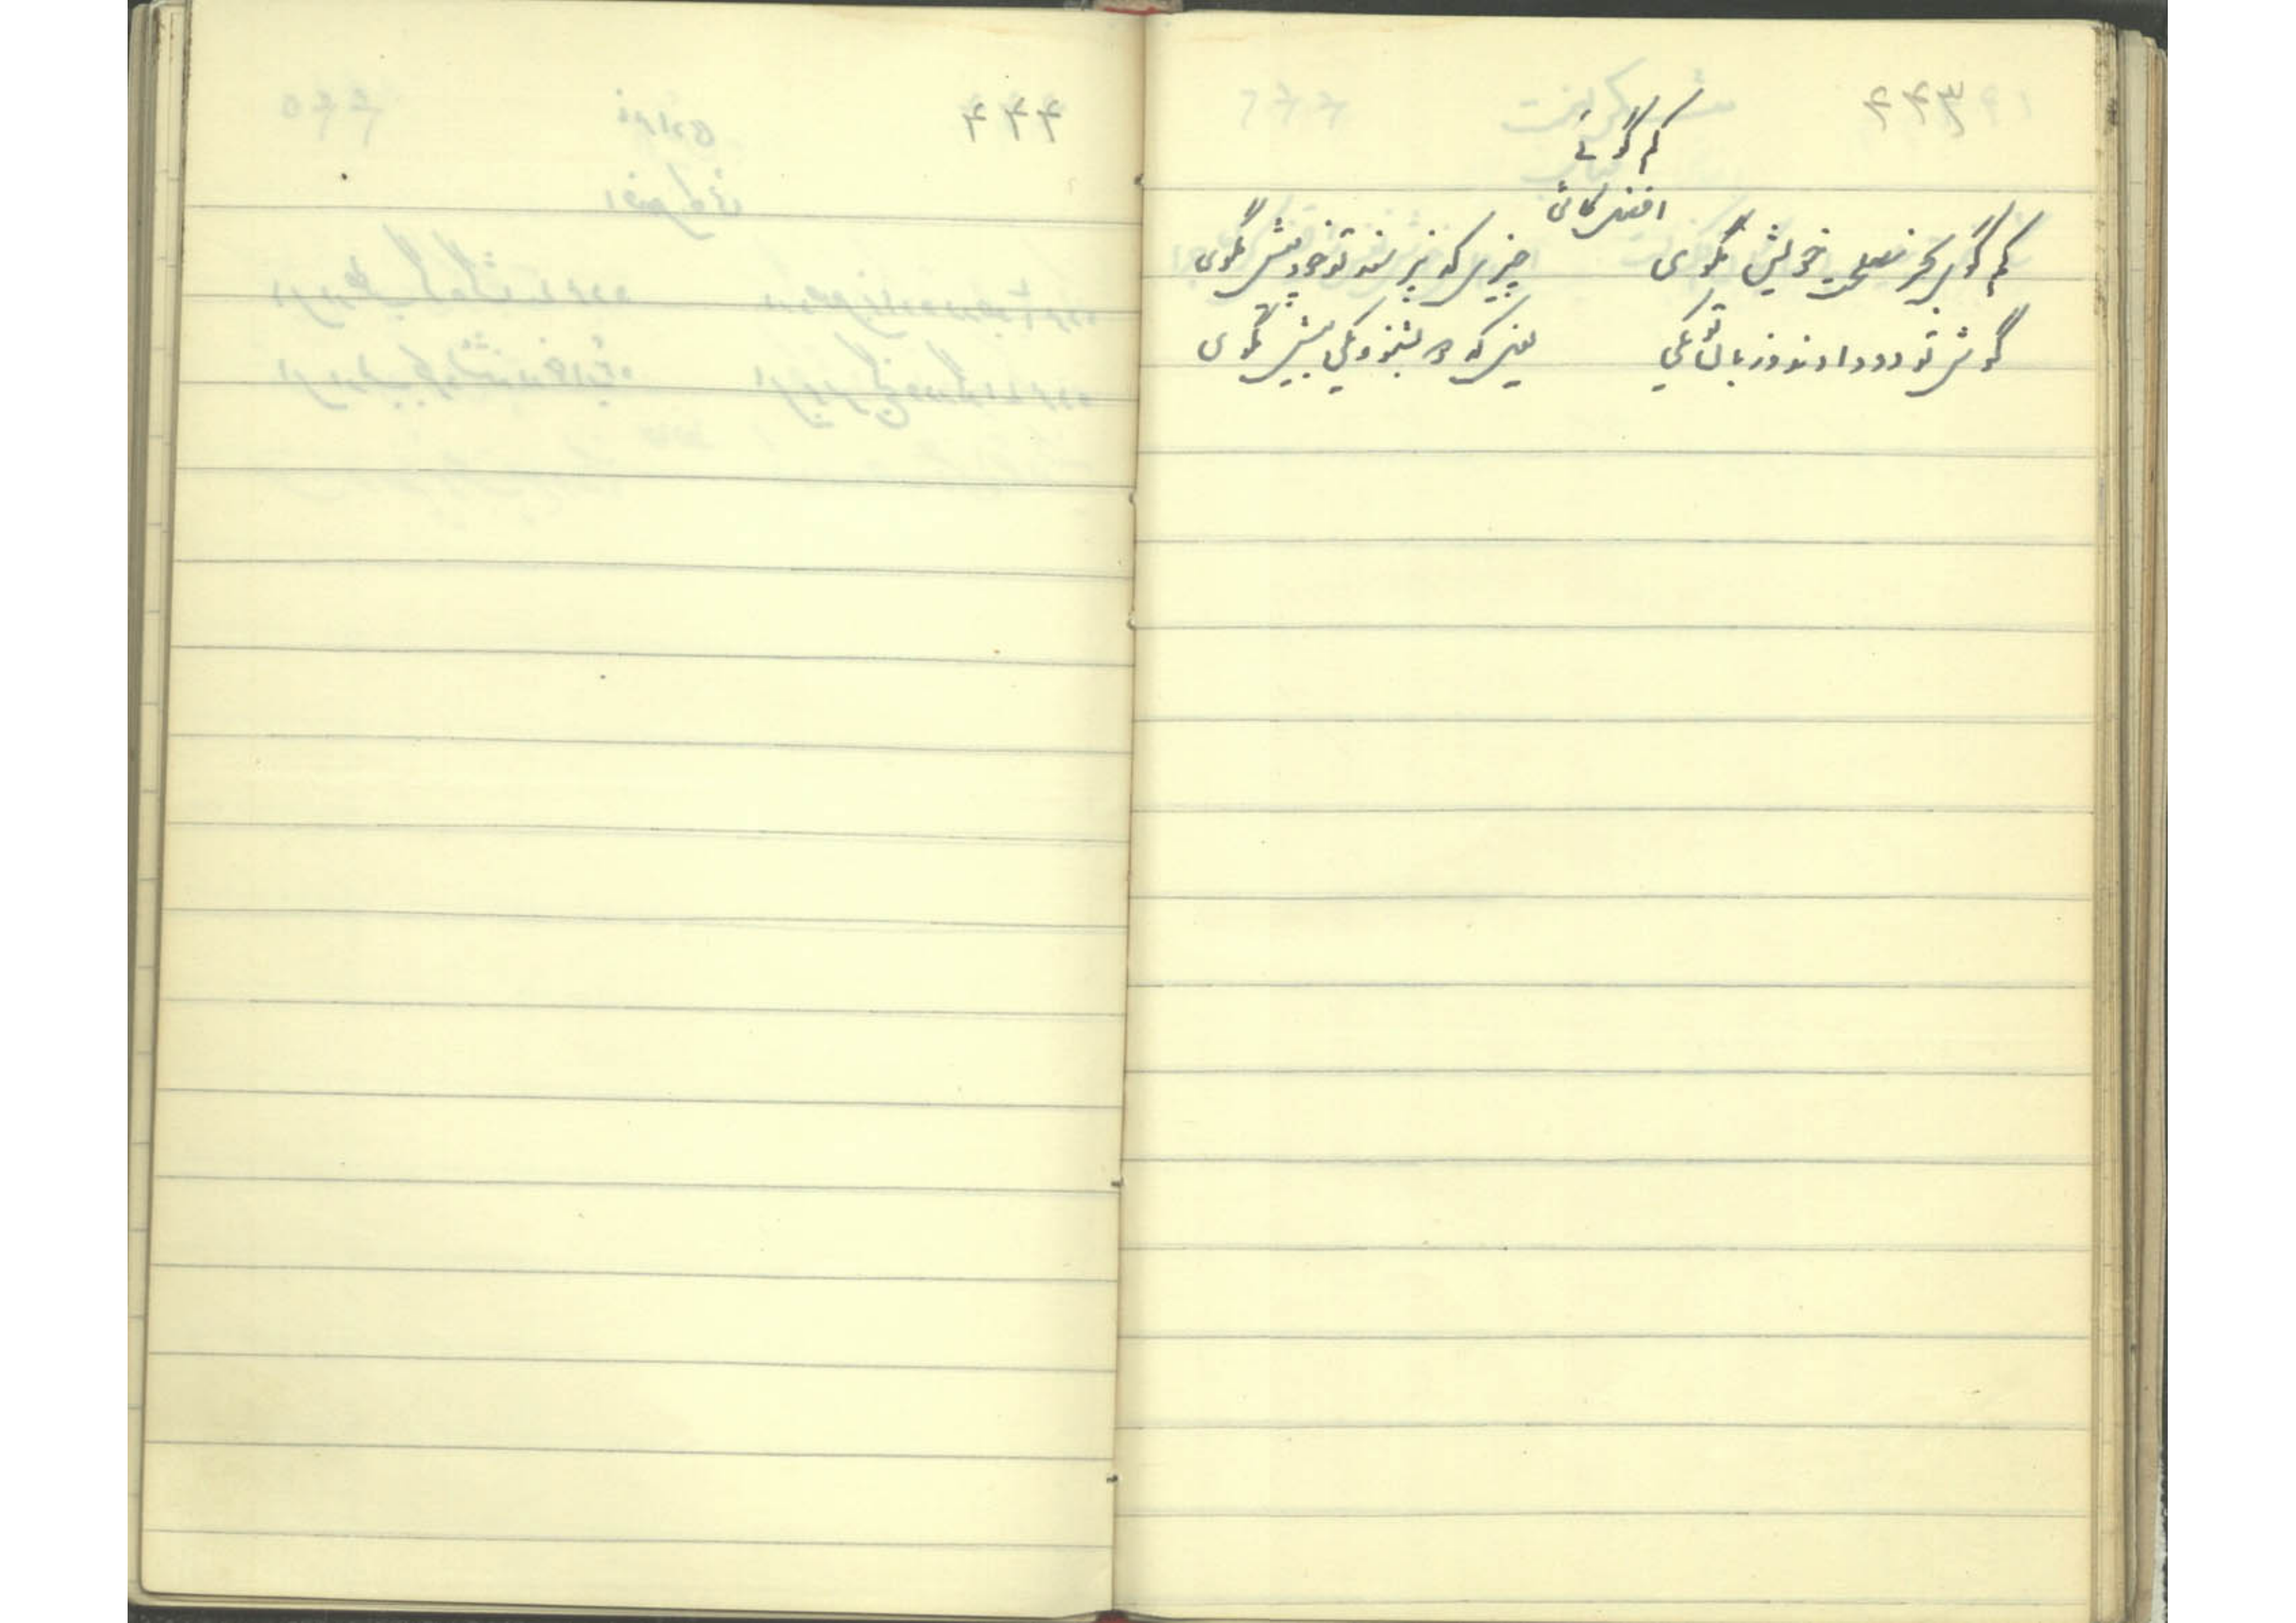 ۴۴۳
کم گوئے
افضل کاشی
کم گوی و بجز مصلحت خویش مگوی چیزی که نپرسند تو خود پیش مگوی
گوش تو دو دادند و زبان تو یکی یعنی که دو بشنو و یکی بیش مگوی
۴۴۴